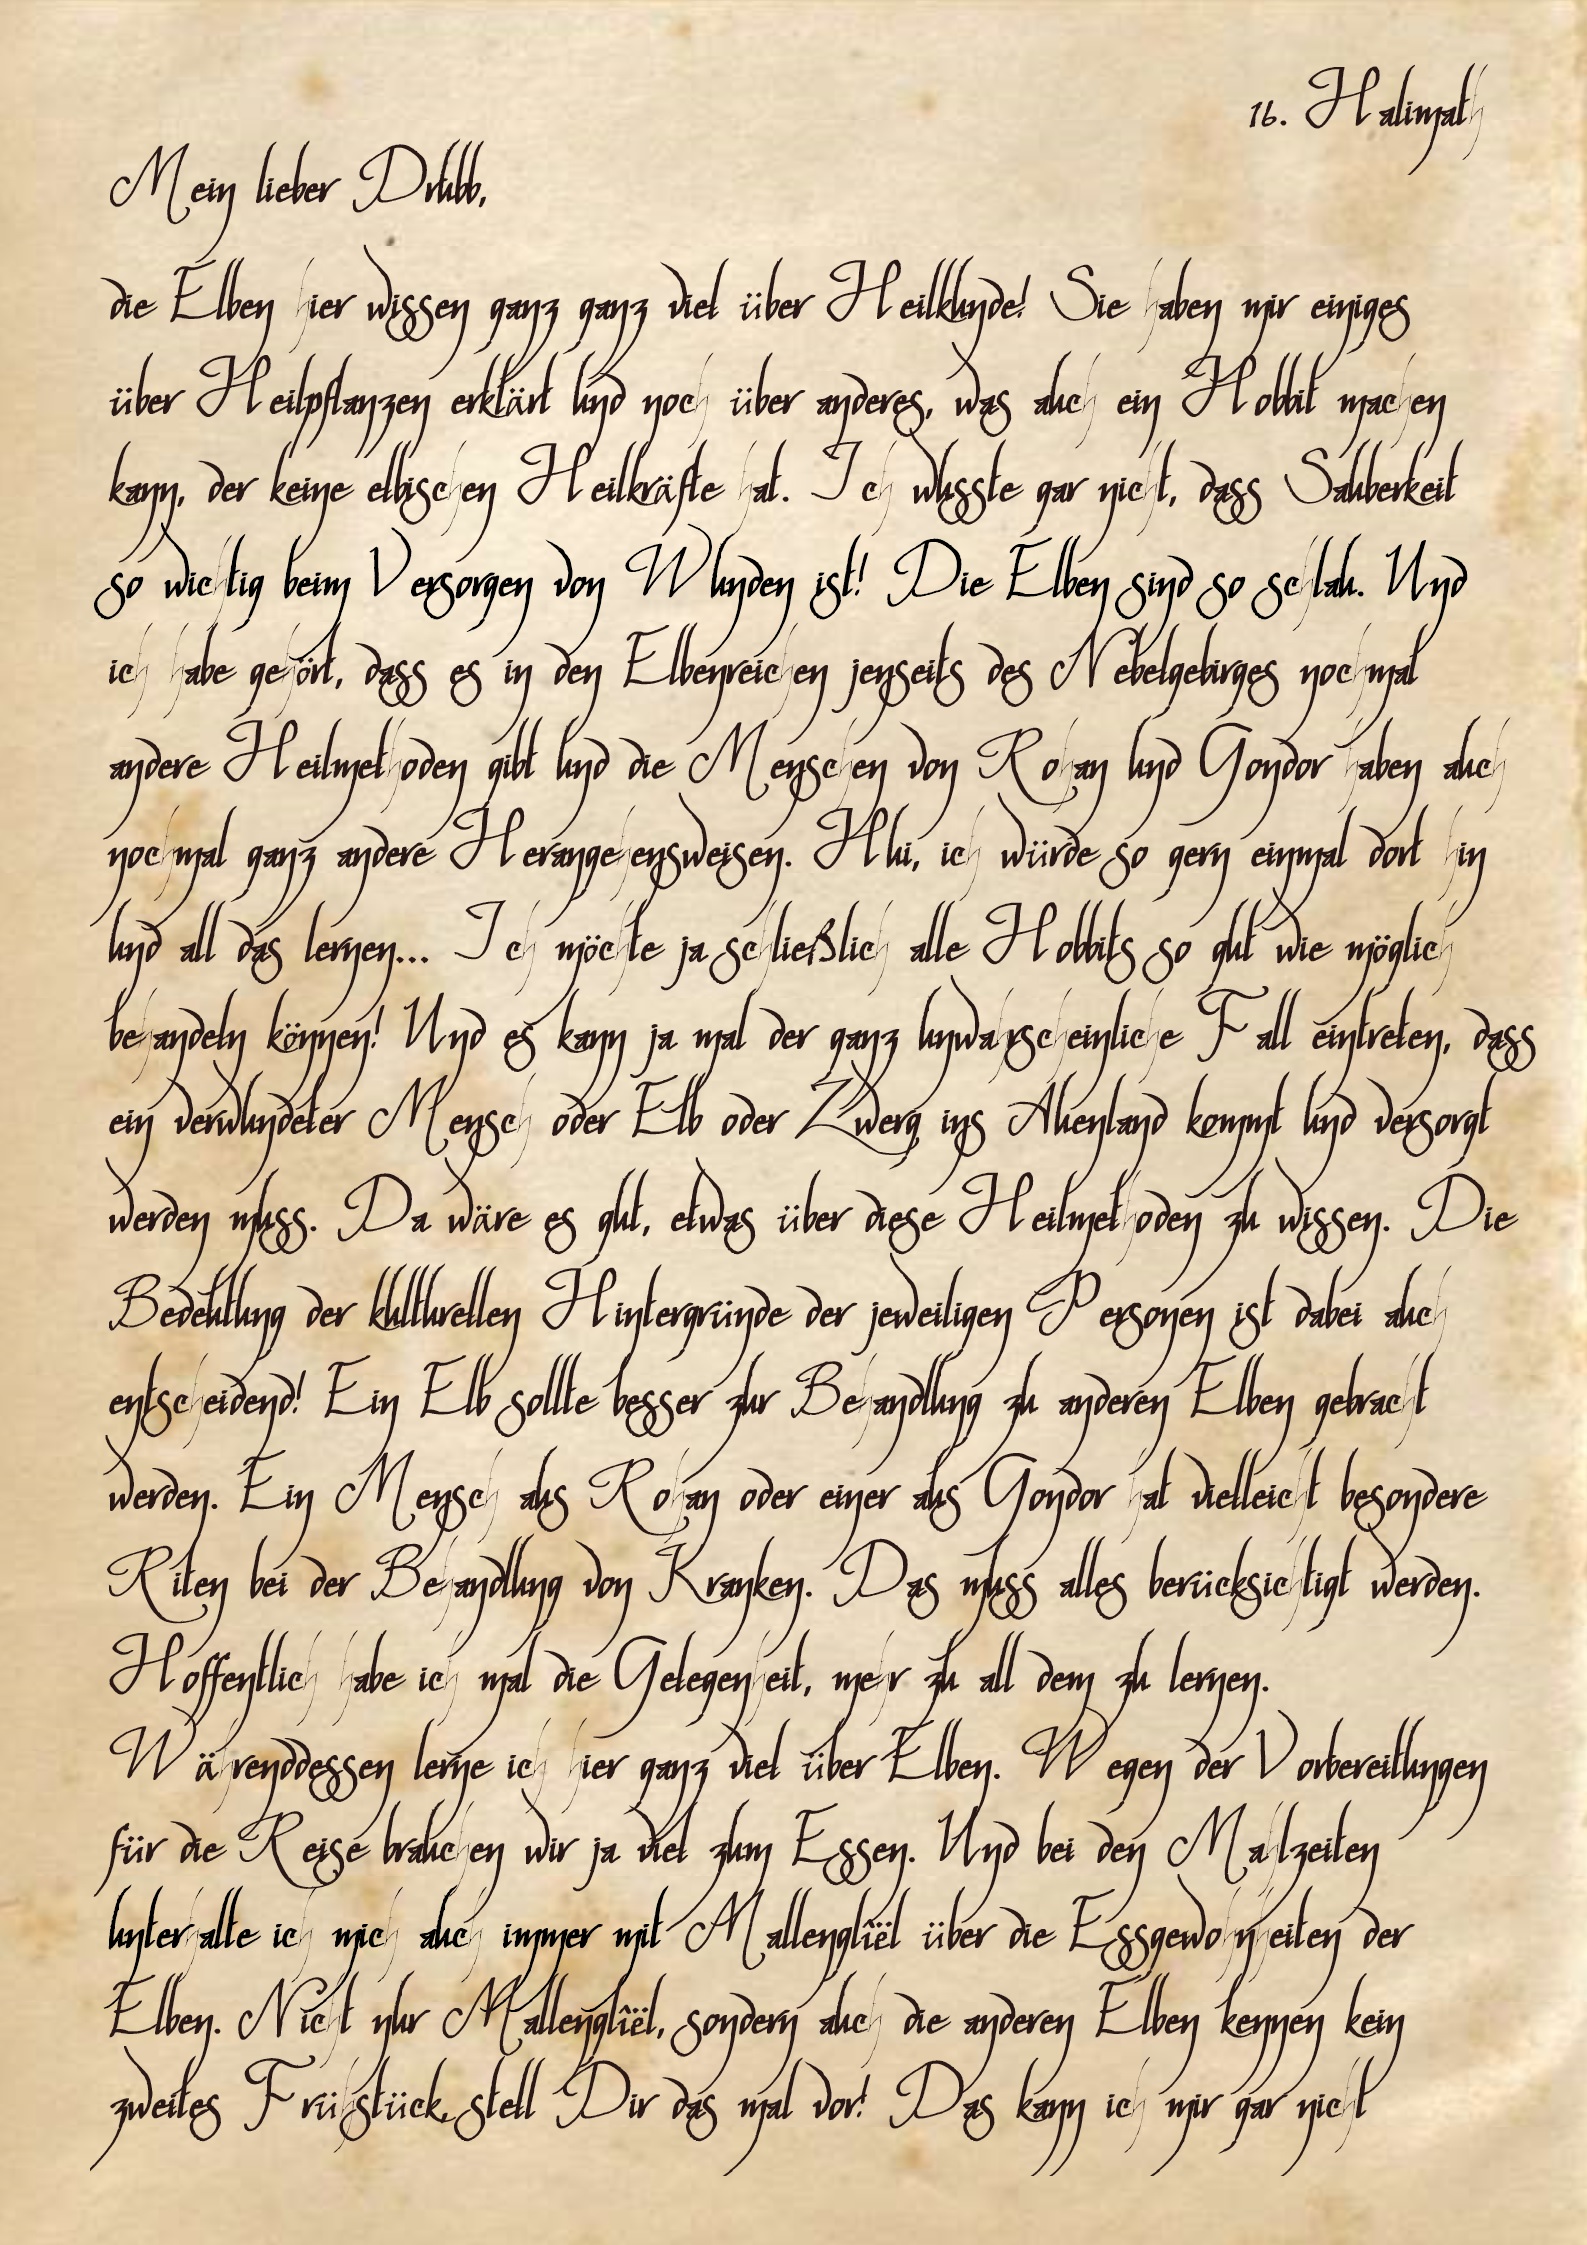 16. Halimath
Mein lieber Drubb,
die Elben hier wissen ganz ganz viel über Heilkunde! Sie haben mir einiges
über Heilpflanzen erklärt und noch über anderes, was auch ein Hobbit machen
kann, der keine elbischen Heilkräfte hat. Ich wusste gar nicht, dass Sauberkeit
so wichtig beim Versorgen von Wunden ist! Die Elben sind so schlau. Und
ich habe gehört, dass es in den Elbenreichen jenseits des Nebelgebirges nochmal
andere Heilmethoden gibt und die Menschen von Rohan und Gondor haben auch
nochmal ganz andere Herangehensweisen. Hui, ich würde so gern einmal dort hin
und all das lernen... Ich möchte ja schließlich alle Hobbits so gut wie möglich
behandeln können! Und es kann ja mal der ganz unwahrscheinliche Fall eintreten, dass
ein verwundeter Mensch oder Elb oder Zwerg ins Auenland kommt und versorgt
werden muss. Da wäre es gut, etwas über diese Heilmethoden zu wissen. Die
Bedeutung der kulturellen Hintergründe der jeweiligen Personen ist dabei auch
entscheidend! Ein Elb sollte besser zur Behandlung zu anderen Elben gebracht
werden. Ein Mensch aus Rohan oder einer aus Gondor hat vielleicht besondere
Riten bei der Behandlung von Kranken. Das muss alles berücksichtigt werden.
Hoffentlich habe ich mal die Gelegenheit, mehr zu all dem zu lernen.
Währenddessen lerne ich hier ganz viel über Elben. Wegen der Vorbereitungen
für die Reise brauchen wir ja viel zum Essen. Und bei den Mahlzeiten
unterhalte ich mich auch immer mit Mallenglîël über die Essgewohnheiten der
Elben. Nicht nur Mallenglîël, sondern auch die anderen Elben kennen kein
zweites Frühstück, stell Dir das mal vor! Das kann ich mir gar nicht